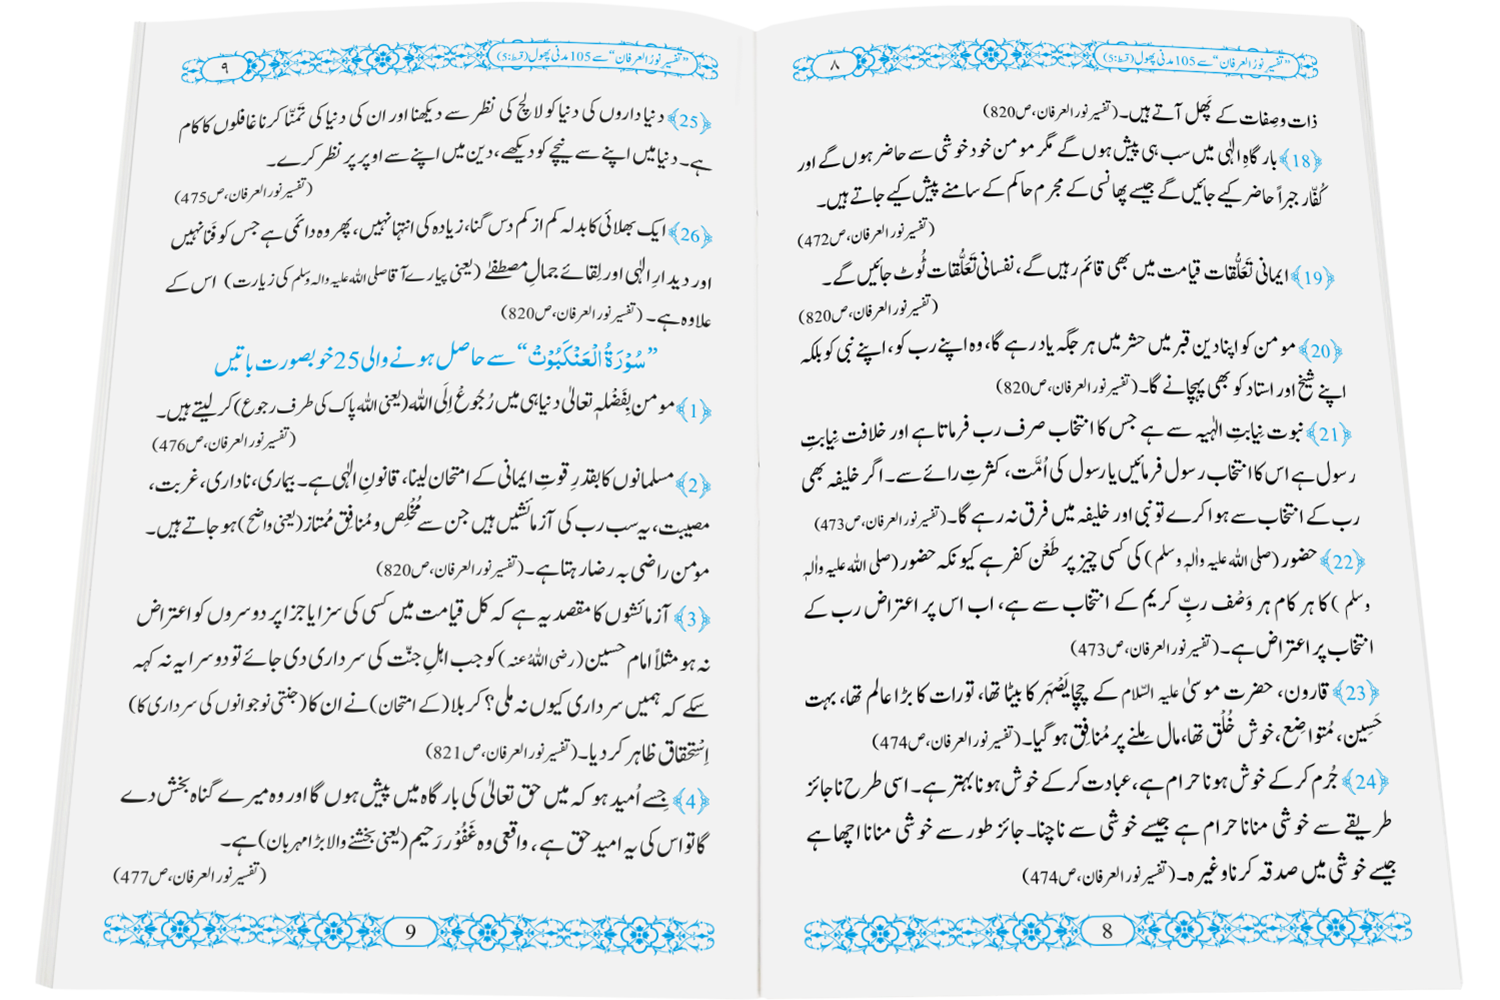 ”تفسیر نورُ العرفان“ سے 105 مدنی پھول (قسط:5)
۸
ذات وصِفات کے پَھل آتے ہیں۔ (تفسیر نور العرفان، ص820)
﴿18﴾ بارگاہِ الٰہی میں سب ہی پیش ہوں گے مگر مومن خود خوشی سے حاضر ہوں گے اور
کُفّار جبراً حاضر کیے جائیں گے جیسے پھانسی کے مجرم حاکم کے سامنے پیش کیے جاتے ہیں۔
(تفسیر نور العرفان، ص472)
﴿19﴾ ایمانی تَعَلُّقات قیامت میں بھی قائم رہیں گے، نفسانی تَعَلُّقات ٹُوٹ جائیں گے۔
(تفسیر نور العرفان، ص820)
﴿20﴾ مومن کو اپنا دین قبر میں حشر میں ہر جگہ یاد رہے گا، وہ اپنے رب کو، اپنے نبی کو بلکہ
اپنے شیخ اور استاد کو بھی پہچانے گا۔ (تفسیر نور العرفان، ص820)
﴿21﴾ نبوت نِیابتِ الٰہیہ سے ہے جس کا انتخاب صرف رب فرماتا ہے اور خلافت نِیابتِ
رسول ہے اس کا انتخاب رسول فرمائیں یا رسول کی اُمَّت، کثرتِ رائے سے۔ اگر خلیفہ بھی
رب کے انتخاب سے ہوا کرے تو نبی اور خلیفہ میں فرق نہ رہے گا۔ (تفسیر نور العرفان، ص473)
﴿22﴾ حضور (صلی اللہ علیہ واٰلہٖ وسلم) کی کسی چیز پر طَعْن کفر ہے کیونکہ حضور (صلی اللہ علیہ واٰلہٖ
وسلم) کا ہر کام ہر وَصْف ربِّ کریم کے انتخاب سے ہے، اب اس پر اعتراض رب کے
انتخاب پر اعتراض ہے۔ (تفسیر نور العرفان، ص473)
﴿23﴾ قارون، حضرت موسیٰ علیہ السّلام کے چچا یَصْہَر کا بیٹا تھا، تورات کا بڑا عالم تھا، بہت
حَسِین، مُتواضِع، خوش خُلْق تھا، مال مِلنے پر مُنافِق ہو گیا۔ (تفسیر نور العرفان، ص474)
﴿24﴾ جُرم کر کے خوش ہونا حرام ہے، عبادت کر کے خوش ہونا بہتر ہے۔ اسی طرح ناجائز
طریقے سے خوشی منانا حرام ہے جیسے خوشی سے ناچنا۔ جائز طور سے خوشی منانا اچھا ہے
جیسے خوشی میں صدقہ کرنا وغیرہ۔ (تفسیر نور العرفان، ص474)
8
”تفسیر نورُ العرفان“ سے 105 مدنی پھول (قسط:5)
۹
﴿25﴾ دنیا داروں کی دنیا کو لالچ کی نظر سے دیکھنا اور ان کی دنیا کی تَمنّا کرنا غافلوں کا کام
ہے۔ دنیا میں اپنے سے نیچے کو دیکھے، دین میں اپنے سے اوپر پر نظر کرے۔
(تفسیر نور العرفان، ص475)
﴿26﴾ ایک بھلائی کا بدلہ کم از کم دس گنا، زیادہ کی انتہا نہیں، پھر وہ دائمی ہے جس کو فَنا نہیں
اور دیدارِ الٰہی اور لِقائے جمالِ مصطفےٰ (یعنی پیارے آقا صلی اللہ علیہ والہ وسلم کی زیارت) اس کے
علاوہ ہے۔ (تفسیر نور العرفان، ص820)
”سُوْرَۃُ الْعَنْکَبُوْت“ سے حاصل ہونے والی 25 خوبصورت باتیں
﴿1﴾ مومن بِفَضْلِہٖ تعالیٰ دنیا ہی میں رُجُوعْ اِلَی اللہ (یعنی اللہ پاک کی طرف رجوع) کر لیتے ہیں۔
(تفسیر نور العرفان، ص476)
﴿2﴾ مسلمانوں کا بقدرِ قوتِ ایمانی کے امتحان لینا، قانونِ الٰہی ہے۔ بیماری، ناداری، غربت،
مصیبت، یہ سب رب کی آزمائشیں ہیں جن سے مُخْلِص و مُنافِق مُمتاز (یعنی واضح) ہو جاتے ہیں۔
مومن راضی بہ رضا رہتا ہے۔ (تفسیر نور العرفان، ص820)
﴿3﴾ آزمائشوں کا مقصد یہ ہے کہ کل قیامت میں کسی کی سزا یا جزا پر دوسروں کو اعتراض
نہ ہو مثلاً امام حسین (رضی اللہُ عنہ) کو جب اہلِ جنّت کی سرداری دی جائے تو دوسرا یہ نہ کہہ
سکے کہ ہمیں سرداری کیوں نہ ملی؟ کربلا (کے امتحان) نے ان کا (جنتی نوجوانوں کی سرداری کا)
اِسْتحقاق ظاہر کر دیا۔ (تفسیر نور العرفان، ص821)
﴿4﴾ جِسے اُمید ہو کہ میں حق تعالیٰ کی بارگاہ میں پیش ہوں گا اور وہ میرے گناہ بخش دے
گا تو اس کی یہ امید حق ہے، واقعی وہ غَفُوْر رَحیم (یعنی بخشنے والا بڑا مہربان) ہے۔
(تفسیر نور العرفان، ص477)
9